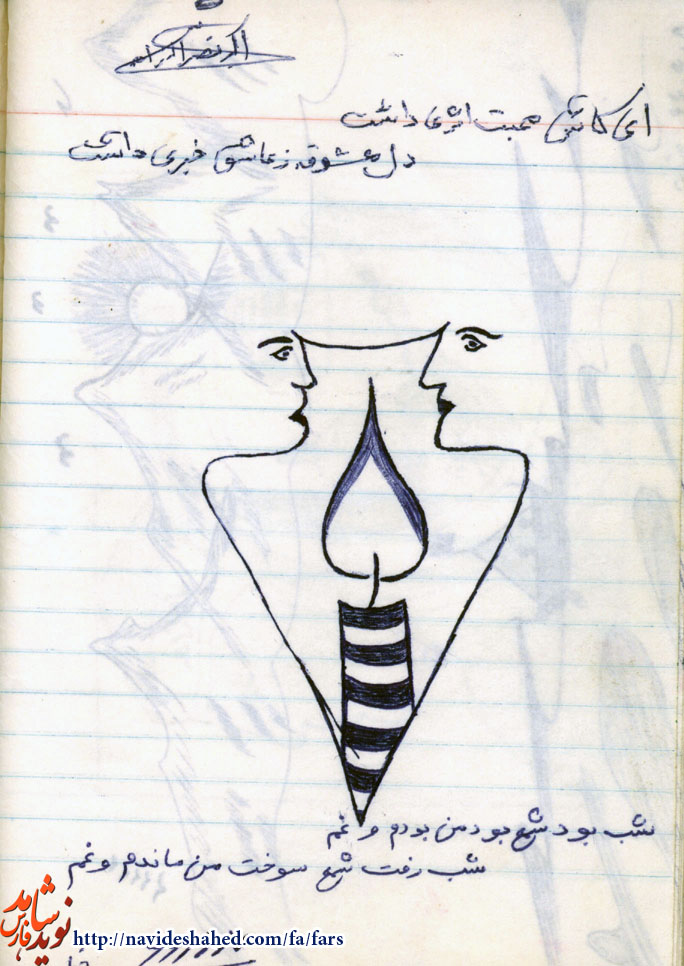 ای کاش محبت اثری داشت
دل معشوقه ز عاشق خبری داشت
شب بود شمع بود من بودم و غم
شب رفت شمع سوخت من ماندم و غم
نوید شاهد فارس
http://navideshahed.com/fa/fars